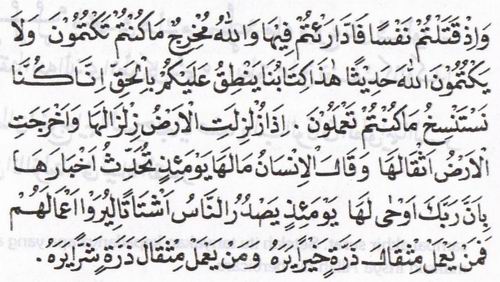 وَاِذْ قَتَلْتُمْ نَفْسًا فَادَّارَئْتُمْ فِيْهَا وَاللّٰهُ مُخْرِجٌ مَا كُنْتُمْ تَكْتُمُوْنَ ۰ وَلَا
يَكْتُمُوْنَ اللّٰهَ حَدِيْثًا هٰذَا كِتَابُنَا يَنْطِقُ عَلَيْكُمْ بِالْحَقِّ اِنَّا كُنَّا
نَسْتَنْسِخُ مَا كُنْتُمْ تَعْمَلُوْنَ ۰ اِذَا زُلْزِلَتِ الْاَرْضُ زِلْزَالَهَا وَاَخْرَجَتِ
الْاَرْضُ اَثْقَالَهَا وَقَالَ الْاِنْسَانُ مَالَهَا يَوْمَئِذٍ تُحَدِّثُ اَخْبَارَهَا
بِاَنَّ رَبَّكَ اَوْحٰى لَهَا يَوْمَئِذٍ يَصْدُرُ النَّاسُ اَشْتَاتًا لِيُرَوْا اَعْمَالَهُمْ
فَمَنْ يَعْمَلْ مِثْقَالَ ذَرَّةٍ خَيْرًا يَرَهُ وَمَنْ يَعْمَلْ مِثْقَالَ ذَرَّةٍ شَرًّا يَرَهُ ۰